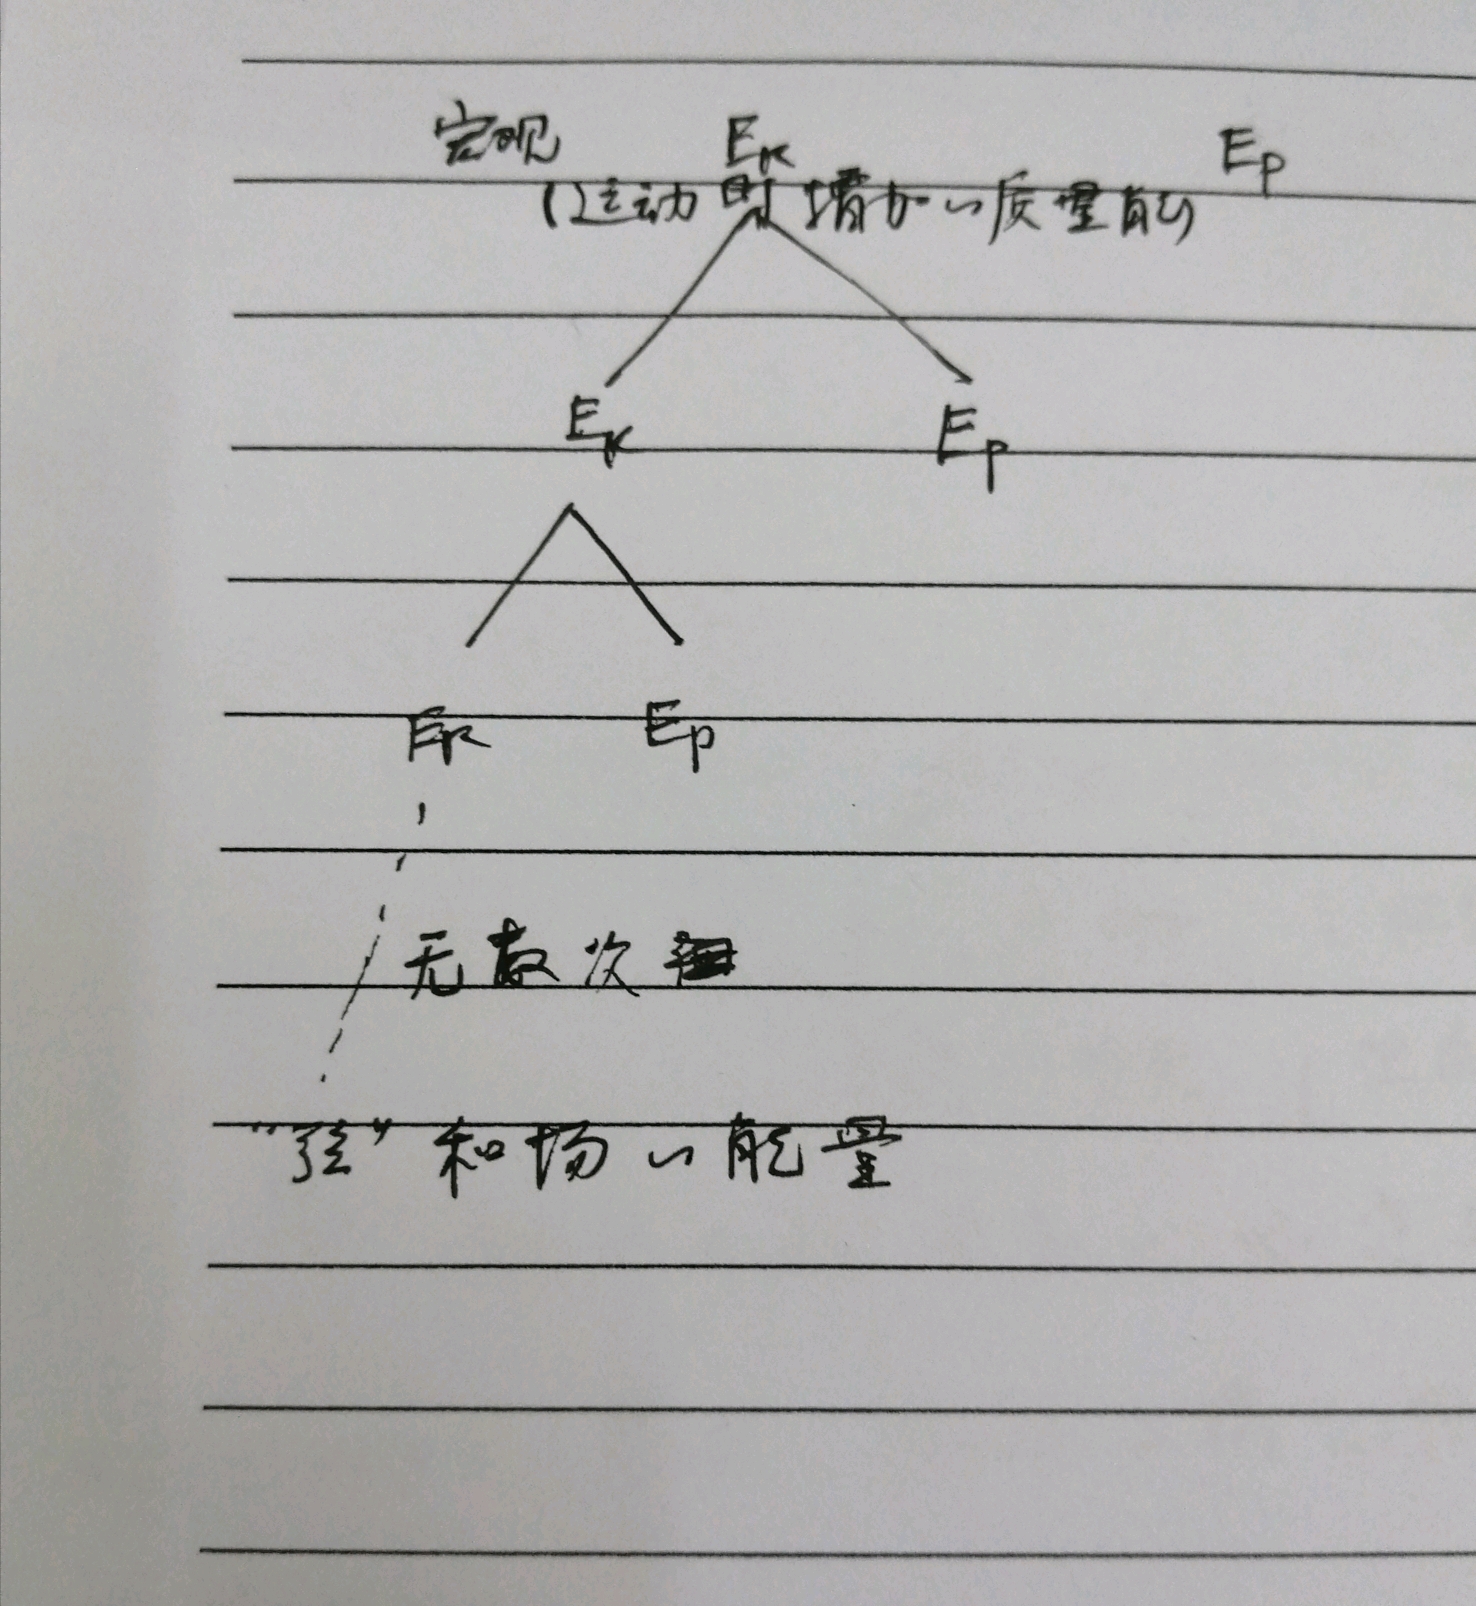 宏观 Ek Ep
(运动时增加的质量能)
Ek Ep
Ek Ep
无数次
"弦"和场的能量